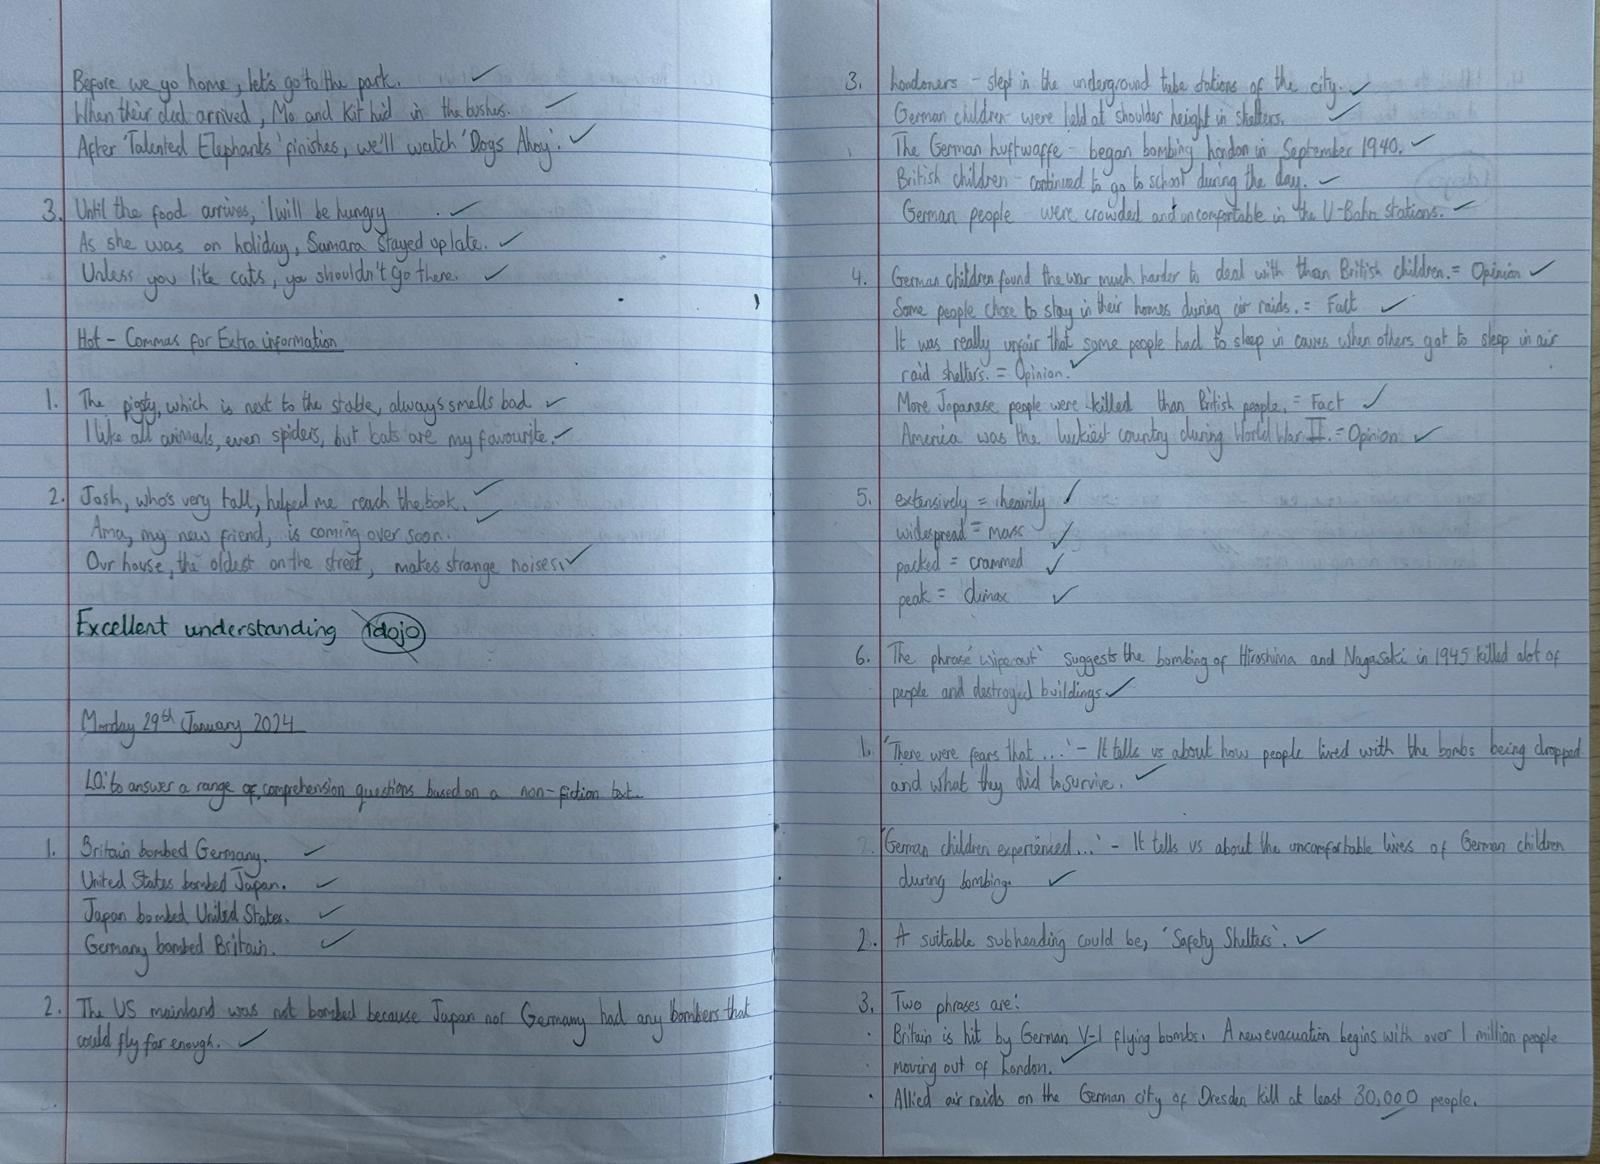 Before we go home, let's go to the park.
When their dad arrived, Mo and Kit hid in the bushes.
After 'Talented Elephants' finishes, we'll watch 'Dogs Ahoy'.
3. Until the food arrives, I will be hungry
As she was on holiday, Samara stayed up late.
Unless you like cats, you shouldn't go there.
Hot - Commas for Extra information
1. The pigsty, which is next to the stable, always smells bad
I like all animals, even spiders, but bats are my favourite.
2. Josh, who's very tall, helped me reach the book.
Ama, my new friend, is coming over soon.
Our house, the oldest on the street, makes strange noises.
Excellent understanding 1dojo
Monday 29th January 2024
LO: to answer a range of comprehension questions based on a non-fiction text
1. Britain bombed Germany.
United States bombed Japan.
Japan bombed United States.
Germany bombed Britain.
2. The US mainland was not bombed because Japan nor Germany had any bombers that
could fly far enough.
3. Londoners - slept in the underground tube stations of the city.
German children - were held at shoulder height in shelters.
The German Luftwaffe - began bombing London in September 1940.
British children - continued to go to school during the day.
German people were crowded and uncomfortable in the U-Bahn stations.
4. German children found the war much harder to deal with than British children. = Opinion
Some people chose to stay in their homes during air raids. = Fact
It was really unfair that some people had to sleep in caves when others got to sleep in air
raid shelters. = Opinion.
More Japanese people were killed than British people. = Fact
America was the luckiest country during World War II. = Opinion
5. extensively = heavily
widespread = mass
packed = crammed
peak = climax
6. The phrase 'wipe out' suggests the bombing of Hiroshima and Nagasaki in 1945 killed alot of
people and destroyed buildings
1. 'There were fears that...' - It tells us about how people lived with the bombs being dropped
and what they did to survive.
'German children experienced...' - It tells us about the uncomfortable lives of German children
during bombing.
2. A suitable subheading could be, 'Safety Shelters'.
3. Two phrases are:
· Britain is hit by German V-1 flying bombs. A new evacuation begins with over 1 million people
moving out of London.
· Allied air raids on the German city of Dresden kill at least 30,000 people.